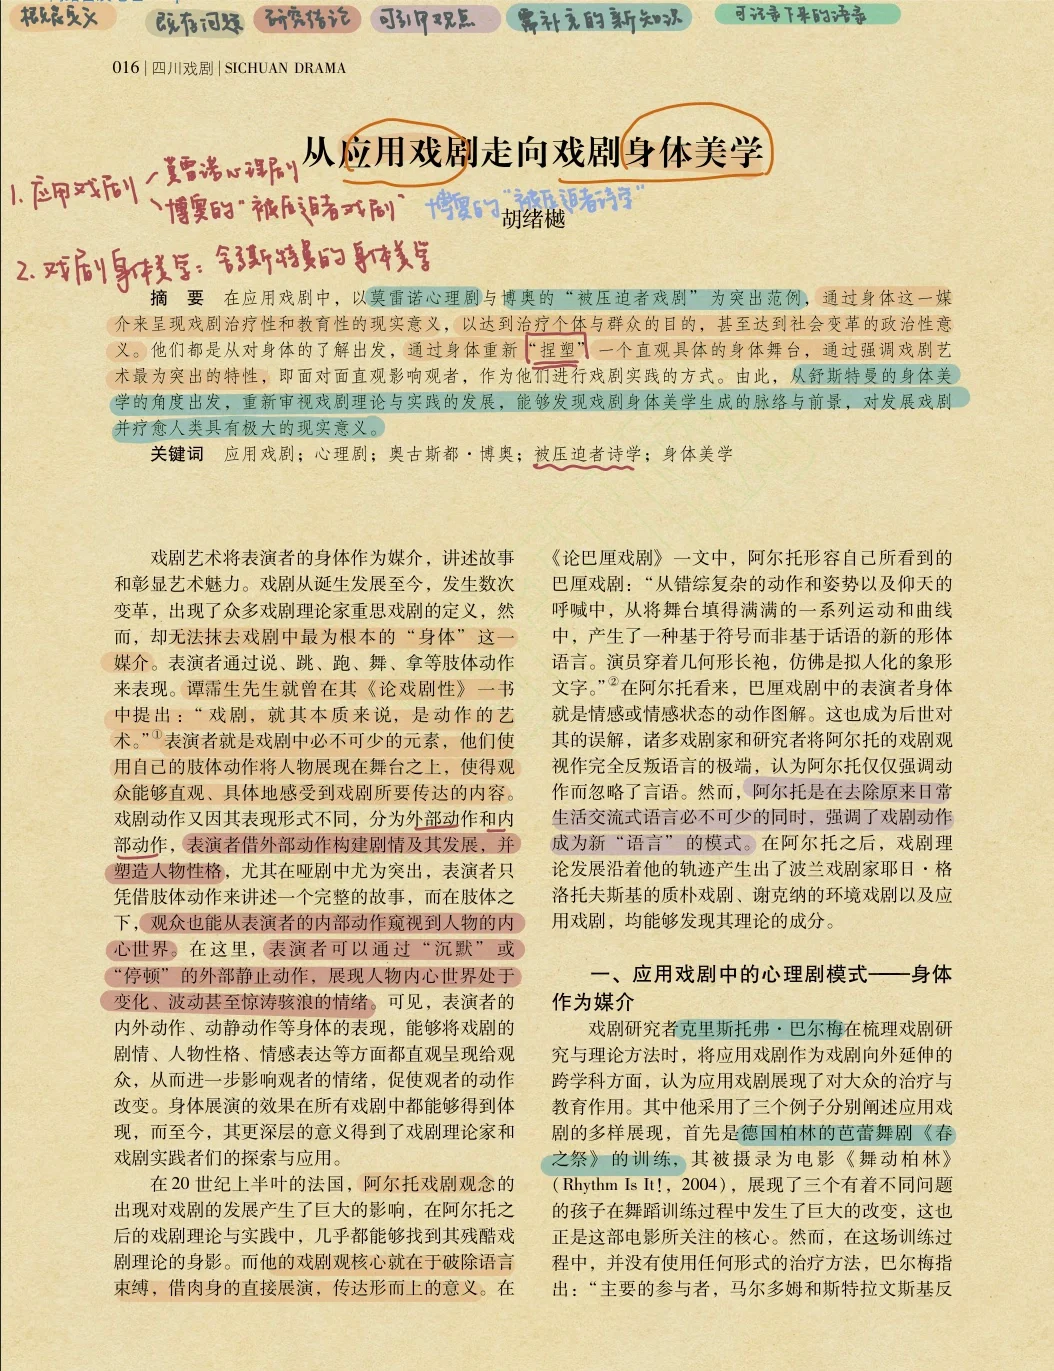 根据定义 既存问题 研究结论 可引用观点 需补充的新知识 可记录下来的语录
016 | 四川戏剧 | SICHUAN DRAMA
从应用戏剧走向戏剧身体美学
1. 应用戏剧 莫雷诺心理剧
博奥的“被压迫者戏剧” 博奥的“被压迫者诗学”
胡绪樾
2. 戏剧身体美学：舒斯特曼的身体美学
摘 要 在应用戏剧中，以莫雷诺心理剧与博奥的“被压迫者戏剧”为突出范例，通过身体这一媒
介来呈现戏剧治疗性和教育性的现实意义，以达到治疗个体与群众的目的，甚至达到社会变革的政治性意
义。他们都是从对身体的了解出发，通过身体重新“捏塑”一个直观具体的身体舞台，通过强调戏剧艺
术最为突出的特性，即面对面直观影响观者，作为他们进行戏剧实践的方式。由此，从舒斯特曼的身体美
学的角度出发，重新审视戏剧理论与实践的发展，能够发现戏剧身体美学生成的脉络与前景，对发展戏剧
并疗愈人类具有极大的现实意义。
关键词 应用戏剧；心理剧；奥古斯都·博奥；被压迫者诗学；身体美学
戏剧艺术将表演者的身体作为媒介，讲述故事
和彰显艺术魅力。戏剧从诞生发展至今，发生数次
变革，出现了众多戏剧理论家重思戏剧的定义，然
而，却无法抹去戏剧中最为根本的“身体”这一
媒介。表演者通过说、跳、跑、舞、拿等肢体动作
来表现。谭霈生先生就曾在其《论戏剧性》一书
中提出：“戏剧，就其本质来说，是动作的艺
术。”①表演者就是戏剧中必不可少的元素，他们使
用自己的肢体动作将人物展现在舞台之上，使得观
众能够直观、具体地感受到戏剧所要传达的内容。
戏剧动作又因其表现形式不同，分为外部动作和内
部动作，表演者借外部动作构建剧情及其发展，并
塑造人物性格，尤其在哑剧中尤为突出，表演者只
凭借肢体动作来讲述一个完整的故事，而在肢体之
下，观众也能从表演者的内部动作窥视到人物的内
心世界。在这里，表演者可以通过“沉默”或
“停顿”的外部静止动作，展现人物内心世界处于
变化、波动甚至惊涛骇浪的情绪。可见，表演者的
内外动作、动静动作等身体的表现，能够将戏剧的
剧情、人物性格、情感表达等方面都直观呈现给观
众，从而进一步影响观者的情绪，促使观者的动作
改变。身体展演的效果在所有戏剧中都能够得到体
现，而至今，其更深层的意义得到了戏剧理论家和
戏剧实践者们的探索与应用。
在 20 世纪上半叶的法国，阿尔托戏剧观念的
出现对戏剧的发展产生了巨大的影响，在阿尔托之
后的戏剧理论与实践中，几乎都能够找到其残酷戏
剧理论的身影。而他的戏剧观核心就在于破除语言
束缚，借肉身的直接展演，传达形而上的意义。在
《论巴厘戏剧》一文中，阿尔托形容自己所看到的
巴厘戏剧：“从错综复杂的动作和姿势以及仰天的
呼喊中，从将舞台填得满满的一系列运动和曲线
中，产生了一种基于符号而非基于话语的新的形体
语言。演员穿着几何形长袍，仿佛是拟人化的象形
文字。”②在阿尔托看来，巴厘戏剧中的表演者身体
就是情感或情感状态的动作图解。这也成为后世对
其的误解，诸多戏剧家和研究者将阿尔托的戏剧观
视作完全反叛语言的极端，认为阿尔托仅仅强调动
作而忽略了言语。然而，阿尔托是在去除原来日常
生活交流式语言必不可少的同时，强调了戏剧动作
成为新“语言”的模式。在阿尔托之后，戏剧理
论发展沿着他的轨迹产生出了波兰戏剧家耶日·格
洛托夫斯基的质朴戏剧、谢克纳的环境戏剧以及应
用戏剧，均能够发现其理论的成分。
一、应用戏剧中的心理剧模式——身体
作为媒介
戏剧研究者克里斯托弗·巴尔梅在梳理戏剧研
究与理论方法时，将应用戏剧作为戏剧向外延伸的
跨学科方面，认为应用戏剧展现了对大众的治疗与
教育作用。其中他采用了三个例子分别阐述应用戏
剧的多样展现，首先是德国柏林的芭蕾舞剧《春
之祭》的训练，其被摄录为电影《舞动柏林》
(Rhythm Is It!，2004)，展现了三个有着不同问题
的孩子在舞蹈训练过程中发生了巨大的改变，这也
正是这部电影所关注的核心。然而，在这场训练过
程中，并没有使用任何形式的治疗方法，巴尔梅指
出：“主要的参与者，马尔多姆和斯特拉文斯基反